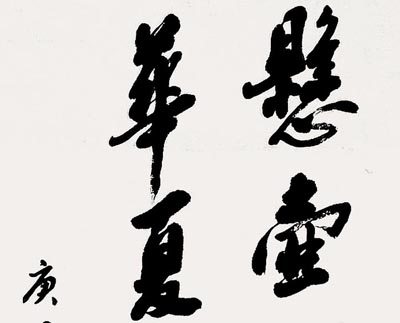 懸壺
華夏
庚